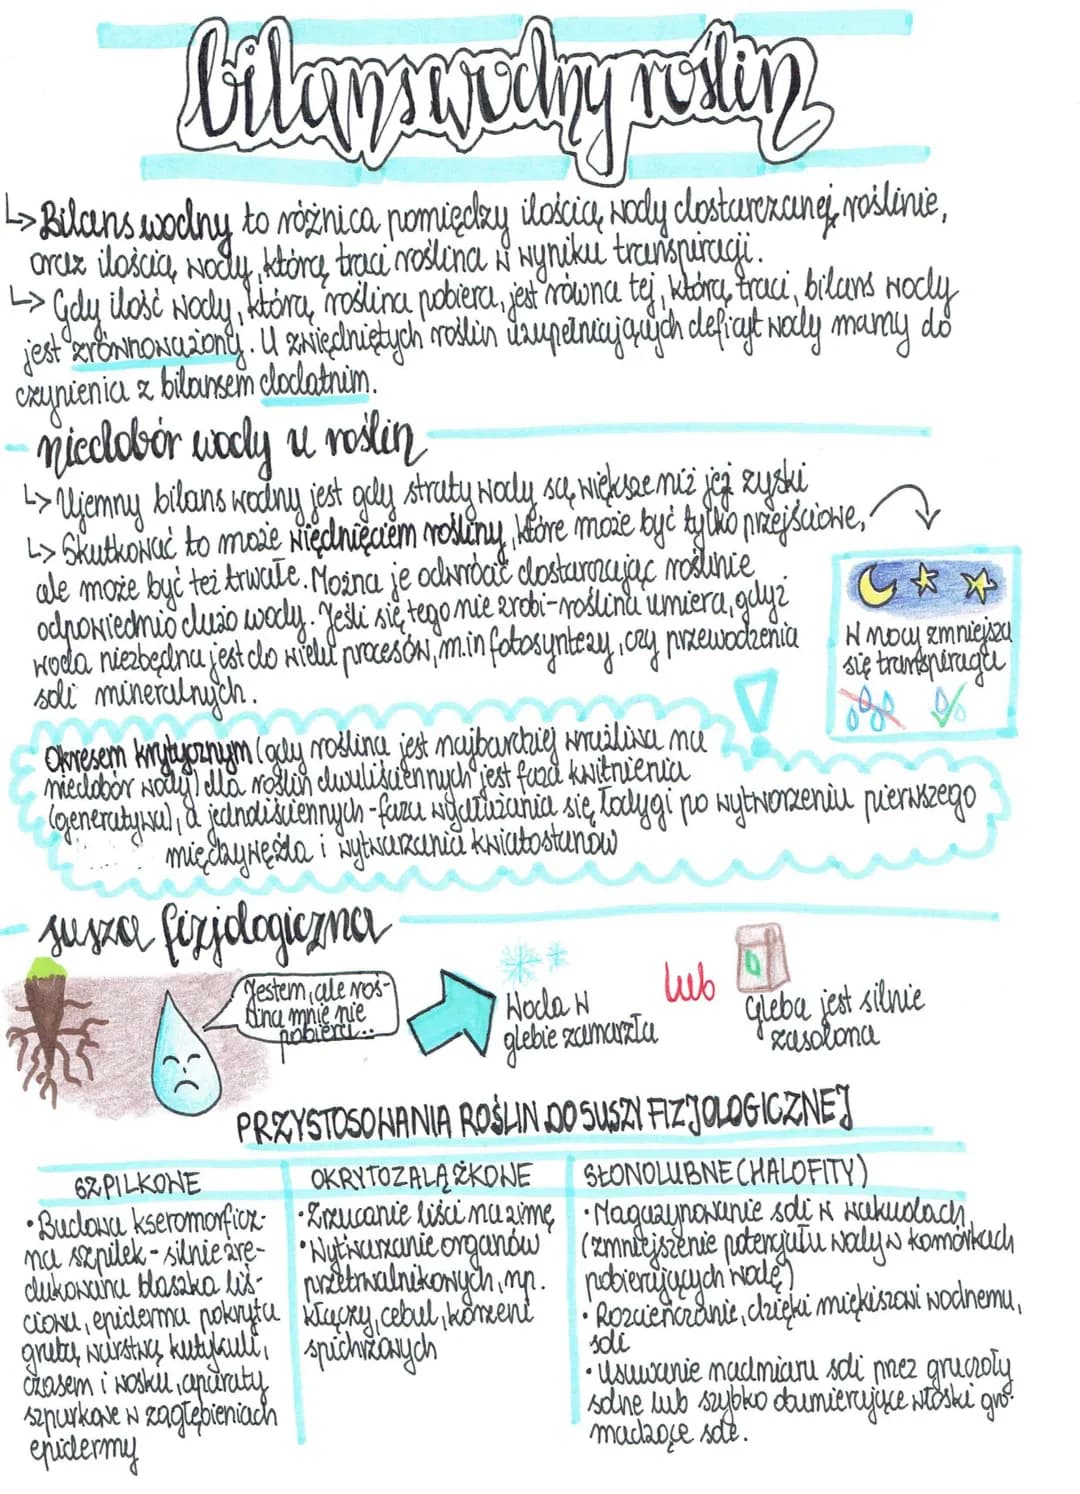 bilans wodny roślin
↳ Bilans wodny to różnica pomiędzy ilością wody dostarczanej roślinie,
oraz ilością wody, którą traci roślina w wyniku transpiracji.
↳ Gdy ilość wody, którą roślina pobiera, jest równa tej, którą traci, bilans wody
jest zrównoważony. U zwiędniętych roślin uzupełniających deficyt wody mamy do
czynienia z bilansem dodatnim.
niedobór wody u roślin
↳ Ujemny bilans wodny jest gdy straty wody są większe niż jej zyski
↳ Skutkować to może więdnięciem rośliny, które może być tylko przejściowe,
ale może być też trwałe. Można je odwrócić dostarczając roślinie
odpowiednio dużo wody. Jeśli się tego nie zrobi - roślina umiera, gdyż
woda niezbędna jest do wielu procesów, m.in fotosyntezy, czy przewodzenia
soli mineralnych.
W nocy zmniejsza
się transpiracja
Okresem krytycznym (gdy roślina jest najbardziej wrażliwa na
niedobór wody) dla roślin dwuliściennych jest faza kwitnienia
(generatywna), a jednoliściennych - faza wydłużania się łodygi po wytworzeniu pierwszego
międzywęźla i wytwarzania kwiatostanów
susza fizjologiczna
Jestem, ale roś-
lina mnie nie
pobiera...
Woda w
glebie zamarzła
lub
Gleba jest silnie
zasolona
PRZYSTOSOWANIA ROŚLIN DO SUSZY FIZJOLOGICZNEJ
SZPILKOWE
• Budowa kseromorficz-
na szpilek - silnie zre-
dukowana blaszka liś-
ciowa, epiderma pokryta
grubą warstwą kutykuli,
czasem i wosku, aparaty
szparkowe w zagłębieniach
epidermy
OKRYTOZALĄŻKOWE
• Zrzucanie liści na zimę
• Wytwarzanie organów
przetrwalnikowych, np.
kłączy, cebul, korzeni
spichrzowych
SŁONOLUBNE (HALOFITY)
• Magazynowanie soli w wakuolach
(zmniejszenie potencjału wody w komórkach
pobierających wodę)
• Rozcieńczanie, dzięki miękiszowi wodnemu,
soli
• Usuwanie nadmiaru soli przez gruczoły
solne lub szybko obumierające włoski gro-
madzące sole.